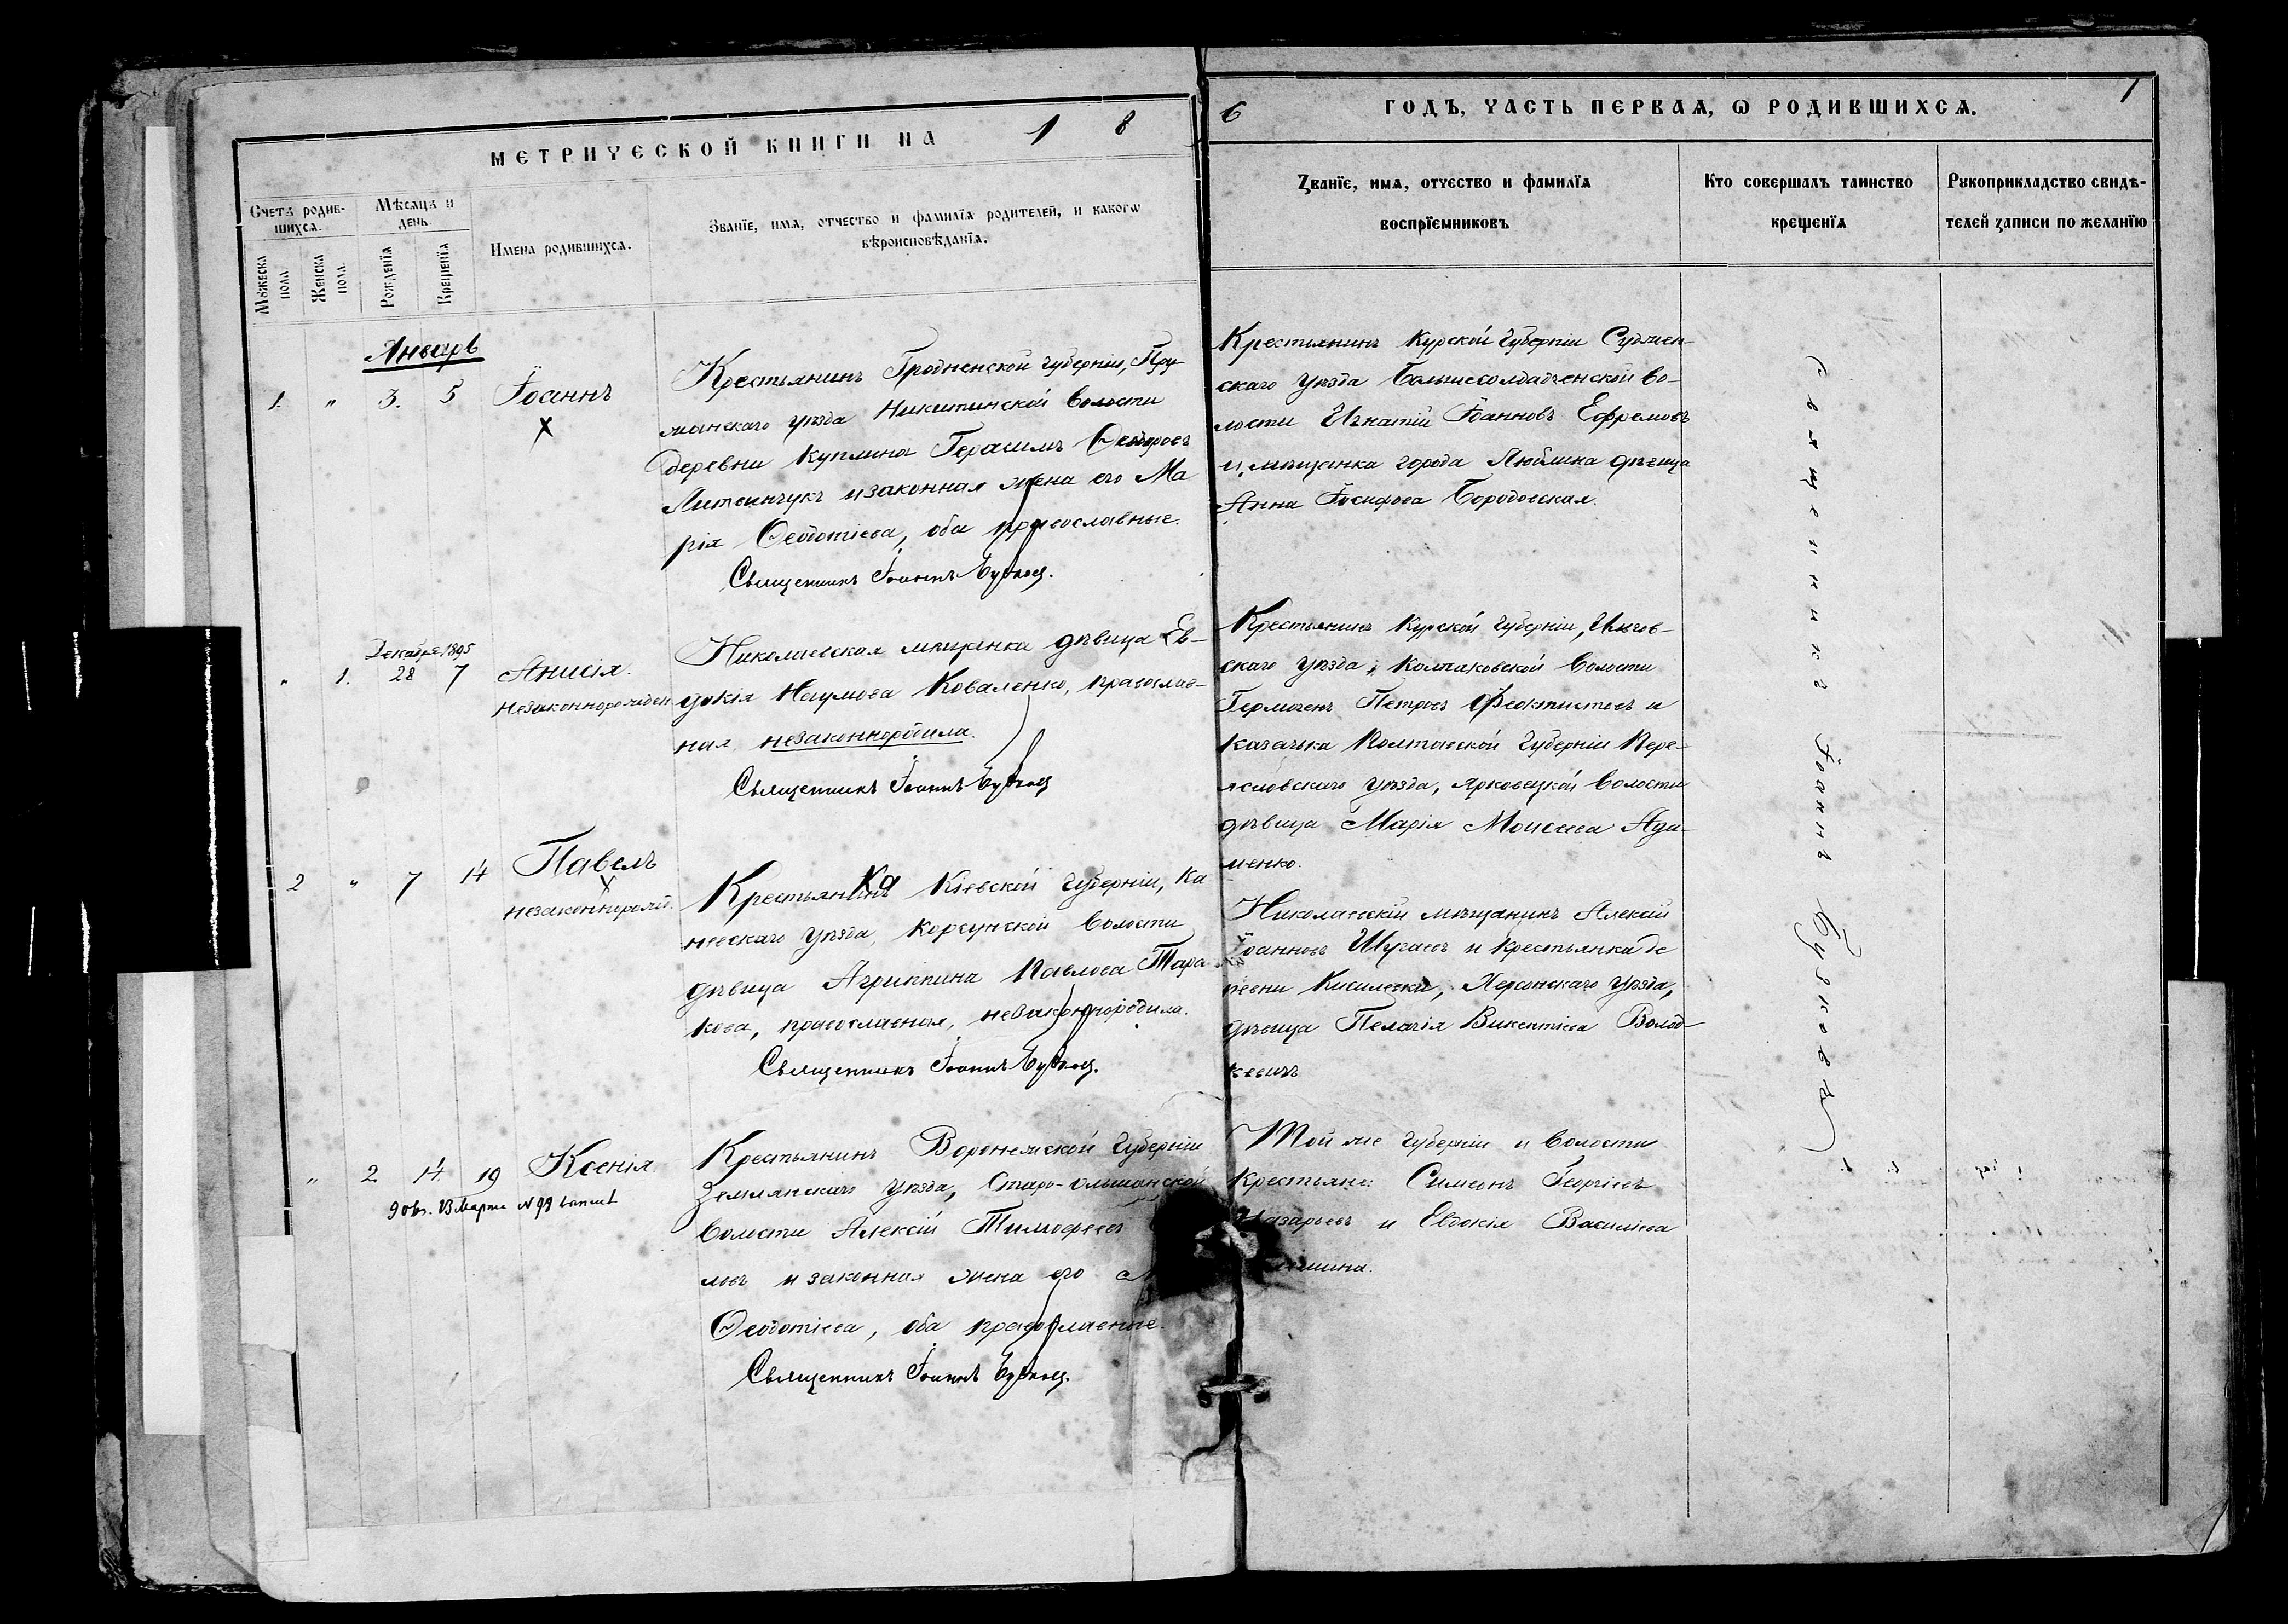 МЕТРИЧЕСКОЙ КНИГИ НА 1 8
6 ГОДЪ, ЧАСТЬ ПЕРВАЯ, Ѡ РОДИВШИХСЯ.
1
Счетъ родив-
шихся.
Мѣсяцъ и
день.
Мꙋжеска
пола
Женска
пола.
Рожденїя
Крещенїя
Имена родившихся.
Званїе, имя, отчество и фамилїя родителей, и какогѡ
вѣроисповѣданїя.
Званїе, имя, отчество и фамилїя
воспрїемниковъ
Кто совершалъ таинство
крещенїя
Рꙋкоприкладство свидѣ-
телей записи по желанїю
Январь
1. " 3. 5 Іоаннъ
Х
Крестьянинъ Гродненской губерніи, Пру
жанскаго уѣзда Никитинской волости
деревни Куплина Герасимъ Ѳеодоровъ
Литвинчукъ и законная жена его Ма
рія Ѳеодотіева, оба православные.
Священникъ Іоаннъ
Крестьянинъ Курской Губерніи Суджен-
скаго уѣзда Большесолдатченской во-
лости Игнатій Іоанновъ Ефремовъ
и мѣщанка города Люблина дѣвица
Анна Іосифова Бородовская.
Декабря 1895
" 1. 28 7 Анисія.
Незаконнорожден
Николаевская мѣщанка дѣвица Ев-
докія Наумова Коваленко, православ-
ная незаконнородила.
Священникъ Іоаннъ
Крестьянинъ Курской Губерніи,
скаго уѣзда, Колпаковской волости
Гермогенъ Петровъ Феоктистовъ и
казачка Полтавской Губерніи Пере-
яславскаго уѣзда, Ярковецкой волости
дѣвица Марія Моисеева Ада-
менко.
2 " 7 14 Павелъ
Х
незаконнорожд.
Крестьянка Кіевской Губерніи, Ка
невскаго уѣзда, Корсунской волости
дѣвица Агриппина Павлова Тара
кова, православная, незаконнородила.
Священникъ Іоаннъ
Николаевскій мѣщанинъ Алексій
Іоанновъ и крестьянка де
ревни Киселевки, Херсонскаго уѣзда,
дѣвица Пелагія Викентіева Волод-
кевичъ
" 2. 14. 19 Ксенія
13 Марта №99
Крестьянинъ Воронежской Губерніи
Землянскаго уѣзда, Старо-ольшанской
волости Алексій Тимофеевъ
ловъ и законная жена его
Ѳеодотіева, оба православные.
Священникъ Іоаннъ
Той же губерніи и волости
Крестьяне: Симеонъ Георгіевъ
Назарьевъ и Евдокія Василіева
шина.
Священникъ Іоаннъ